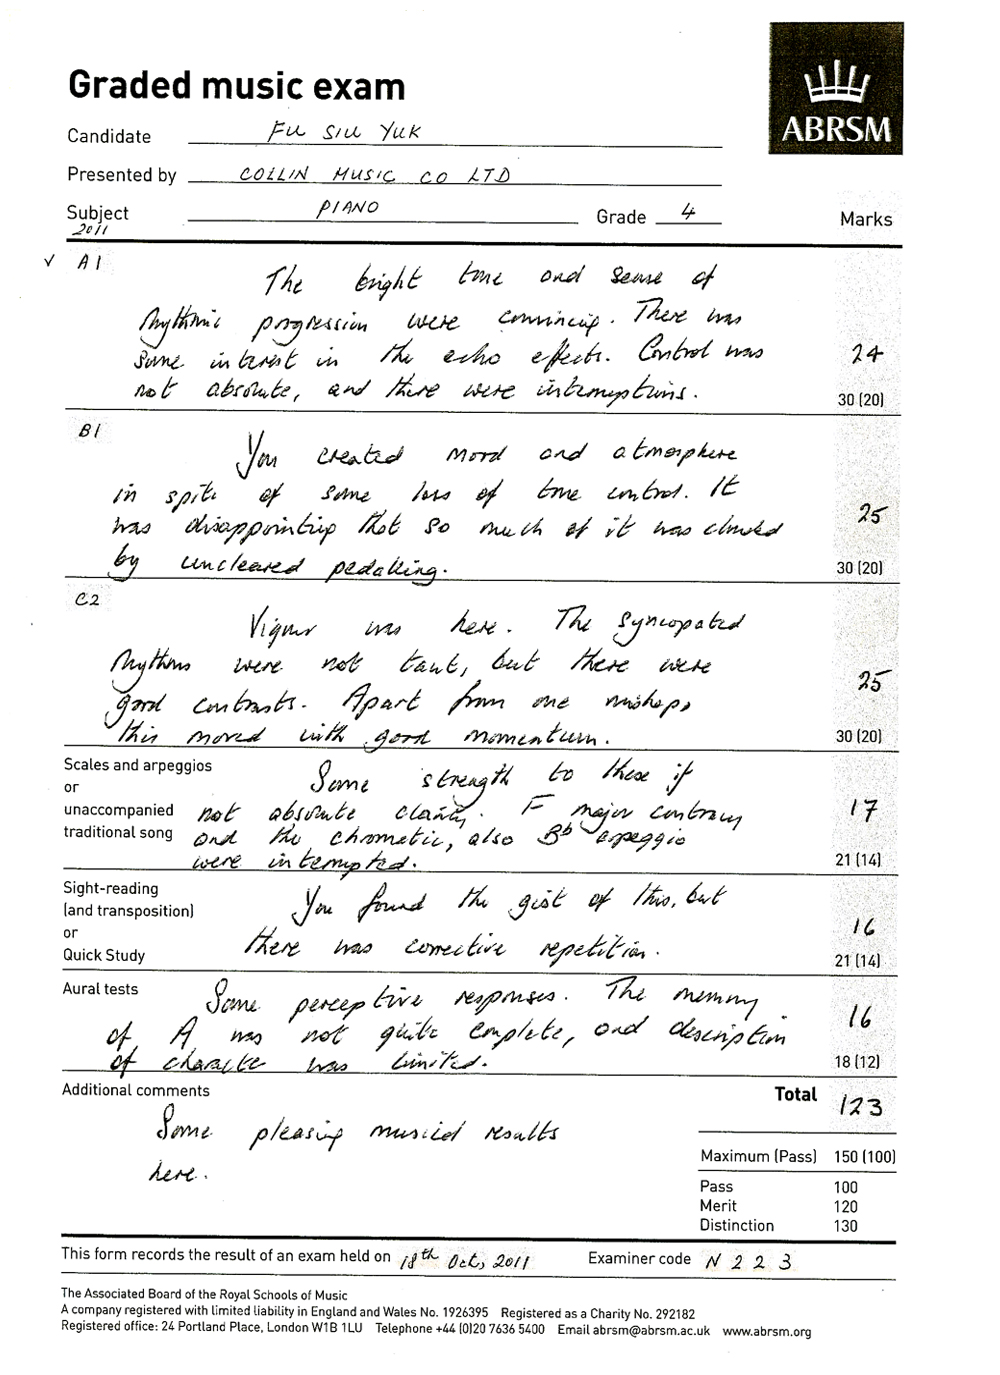 ABRSM
Graded music exam
Candidate FU SIU YUK
Presented by COLLIN MUSIC CO LTD
Subject PIANO Grade 4 Marks
2011
✓ A1
The bright tone and sense of
rhythmic progression were convincing. There was
some interest in the echo effects. Control was 24
not absolute, and there were interruptions.
30 (20)
B1
You created mood and atmosphere
in spite of some loss of tone control. It
was disappointing that so much of it was clouded 25
by uncleared pedalling.
30 (20)
C2
Vigour was here. The syncopated
rhythms were not taut, but there were
good contrasts. Apart from one mishap, 25
this moved with good momentum.
30 (20)
Scales and arpeggios
or
unaccompanied
traditional song
Some strength to these if
not absolute clarity. F major contrary 17
and the chromatic, also Bb arpeggio
were interrupted.
21 (14)
Sight-reading
(and transposition)
or
Quick Study
You found the gist of this, but
there was corrective repetition. 16
21 (14)
Aural tests
Some perceptive responses. The memory
of A was not quite complete, and description 16
of character was limited.
18 (12)
Additional comments
Some pleasing musical results
here.
Total 123
Maximum (Pass) 150 (100)
Pass 100
Merit 120
Distinction 130
This form records the result of an exam held on 18th Oct, 2011 Examiner code N 2 2 3
The Associated Board of the Royal Schools of Music
A company registered with limited liability in England and Wales No. 1926395 Registered as a Charity No. 292182
Registered office: 24 Portland Place, London W1B 1LU Telephone +44 (0)20 7636 5400 Email abrsm@abrsm.ac.uk www.abrsm.org